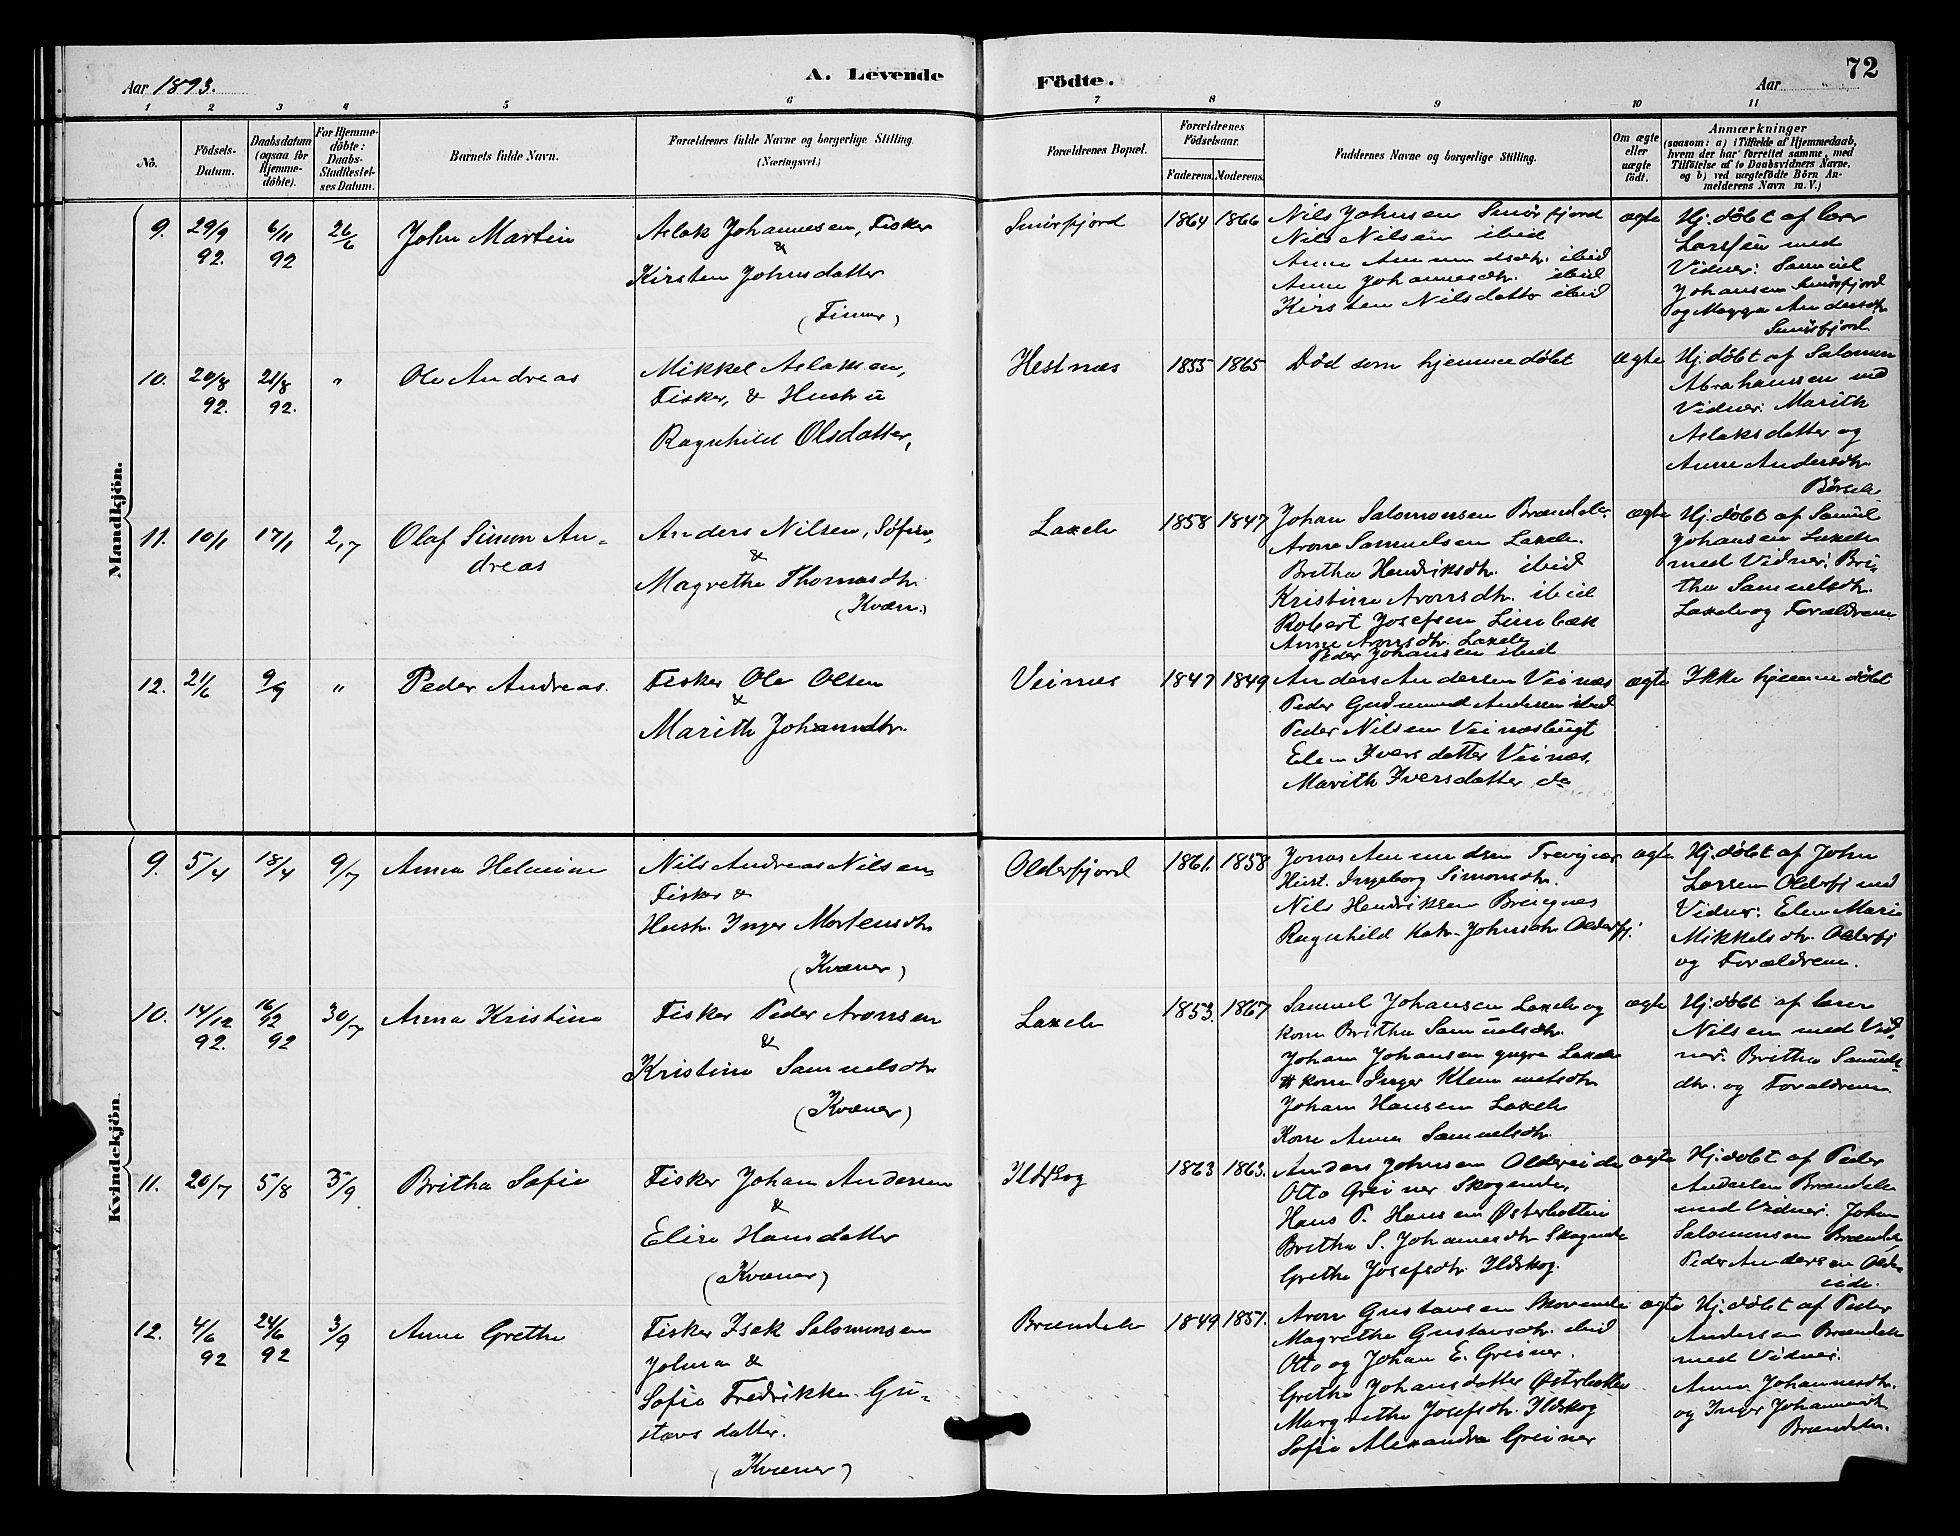 Aar 1893.
A. Levende
Födte.
Aar
72
1 2 3 4 5 6 7 8 9 10 11
No.
Födsels-
Datum.
Daabsdatum
(ogsaa for
Hjemme-
döbte).
For Hjemme-
döbte:
Daabs-
Stadfæstel-
ses Datum.
Barnets fulde Navn.
Forældrenes fulde Navne og borgerlige Stilling.
(Næringsvei.)
Forældrenes Bopæl.
Forældrenes
Födselsaar.
Faderens.
Moderens.
Faddernes Navne og borgerlige Stilling.
Om ægte
eller
uægte
födt.
Anmærkninger
(saasom: a) i Tilfælde af Hjemmedaab,
hvem der har forrettet samme, med
Tilföielse af to Daabsvidners Navne,
og b) ved uægtefödte Börn An-
melderens Navn m. V.)
Mandkjön.
9.
29/9
92.
6/11
92
26/6
John Martin
Aslak Johannesen, Fisker
&
Kirsten Johnsdatter
(Finner)
Smörfjord
1864
1866
Nils Johnsen Smörfjord
Nils Nilsen ibid
Anne Amundsdtr. ibid
Anne Johannesdtr. ibid
Kirsten Nilsdattr ibid
ægte
Hj. döbt af lærer
Larsen med
Vidner: Samuel
Johansen Smörfjord
og Magga Andersdtr
Smörfjord
10.
20/8
92.
21/8
92.
"
Ole Andreas
Mikkel Aslaksen,
Fisker, & Hustru
Ragnhild Olsdatter,
Hestnæs
1855
1865
Död som hjemmedöbt
ægte
Hj. döbt af Salomon
Abrahamsen med
Vidner: Marith
Aslaksdatter og
Anne Andersdtr.
Börselv
11.
10/1
17/1
2/7
Olaf Simon An-
dreas
Anders Nilsen,
&
Magrethe Thomasdtr.
(Kvæn.)
Laxelv
1858
1847
Johan Salomonsen Brændelv
Arone Samuelsen Laxelv.
Britha Hendriksdtr. ibid
Kristine Aronsdtr. ibid
Robert Josefsen
Anne Aronsdtr. Laxelv
Peder Johansen ibid
ægte
Hj. döbt af Samuel
Johansen Laxelv
med Vidner: Bri-
tha Samuelsdtr.
Laxelv og Forældrene
12.
21/6
9/9
"
Peder Andreas.
Fisker Ole Olsen
&
Marith Johansdtr.
Veinæs
1847
1849
Anders Andersen Veinæs
Peder Gudmund Andersen ibid
Peder Nilsen Veinæsbugt
Elen Iversdatter Veinæs.
Marith Iversdatter do
ægte
Ikke hjemmedöbt
Kvindekjön.
9.
5/4
18/4
9/7
Anna Helmine
Nils Andreas Nilsen,
Fisker &
Hustr. Inger Mortensdtr
(Kvæner)
Olderfjord
1861.
1858
Jonas Amundsen
Hust. Ingeborg Simonsdtr.
Nils Hendriksen
Ragnhild Katr. Johnsdtr Olderfj.
ægte
Hj. döbt af John
Larsen Olderfj med
Vidner: Elen Marie
Mikkelsdtr. Olderfj
og Forældrene.
10.
14/12
92.
16/12
92
30/7
Anna Kristine
Fisker Peder Aronsen
&
Kristine Samuelsdtr
(Kvæner)
Laxelv
1853.
1867
Samuel Johansen Laxelv og
kone Britha Samuelsdtr.
Johan Johansen yngre Laxelv
kone Inger Klemmetsdtr
Johan Hansen Laxelv
Kone Anna Samuelsdtr.
ægte
Hj. döbt af lærer
Nilsen med Vid-
ner: Britha Samuels-
dtr. og Forældrene
11.
20/7
5/8
3/9
Britha Sofie
Fisker Johan Andersen
&
Elise Hansdatter
(Kvæner)
Ildskog
1863
1863.
Anders Johnsen Oldereide
Otto Greiner Skoganda,
Hans P. Hansen Østerbotten
Britha S. Johannesdtr Skogande
Grethe Josefsdtr. Ildskog.
ægte
Hj. döbt af Peder
Andersen Brændelv
med Vidner: Johan
Salomonsen Brændelv
Peder Andersen Older-
eide.
12.
4/6
92
24/6
92
3/9
Anne Grethe
Fisker Isak Salomonsen
Jolma &
Sofie Fredrikke Gu-
stavsdatter.
(Kvæner)
Brændelv
1849
1851.
Aron Gustavsen
Magrethe Gustavsdtr. ibid
Otto og Johan E. Greiner.
Grethe Johansdatter Østerbotten
Margrethe Josefsdtr. Ildskog
Sofie Alexandra Greiner
ægte
Hj. döbt af Peder
Andersen Brændelv
med Vidner:
Anna Johannesdtr.
og Inger Johannesdtr
Brændelv.